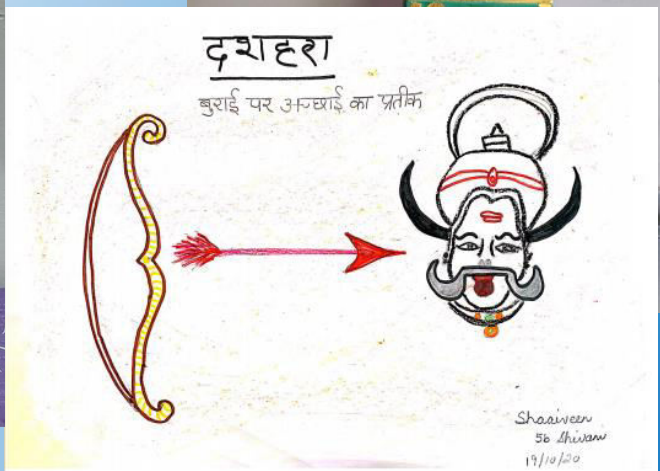 दशहरा
बुराई पर अच्छाई का प्रतीक
Shaaiveen
5b Shivani
19/10/20